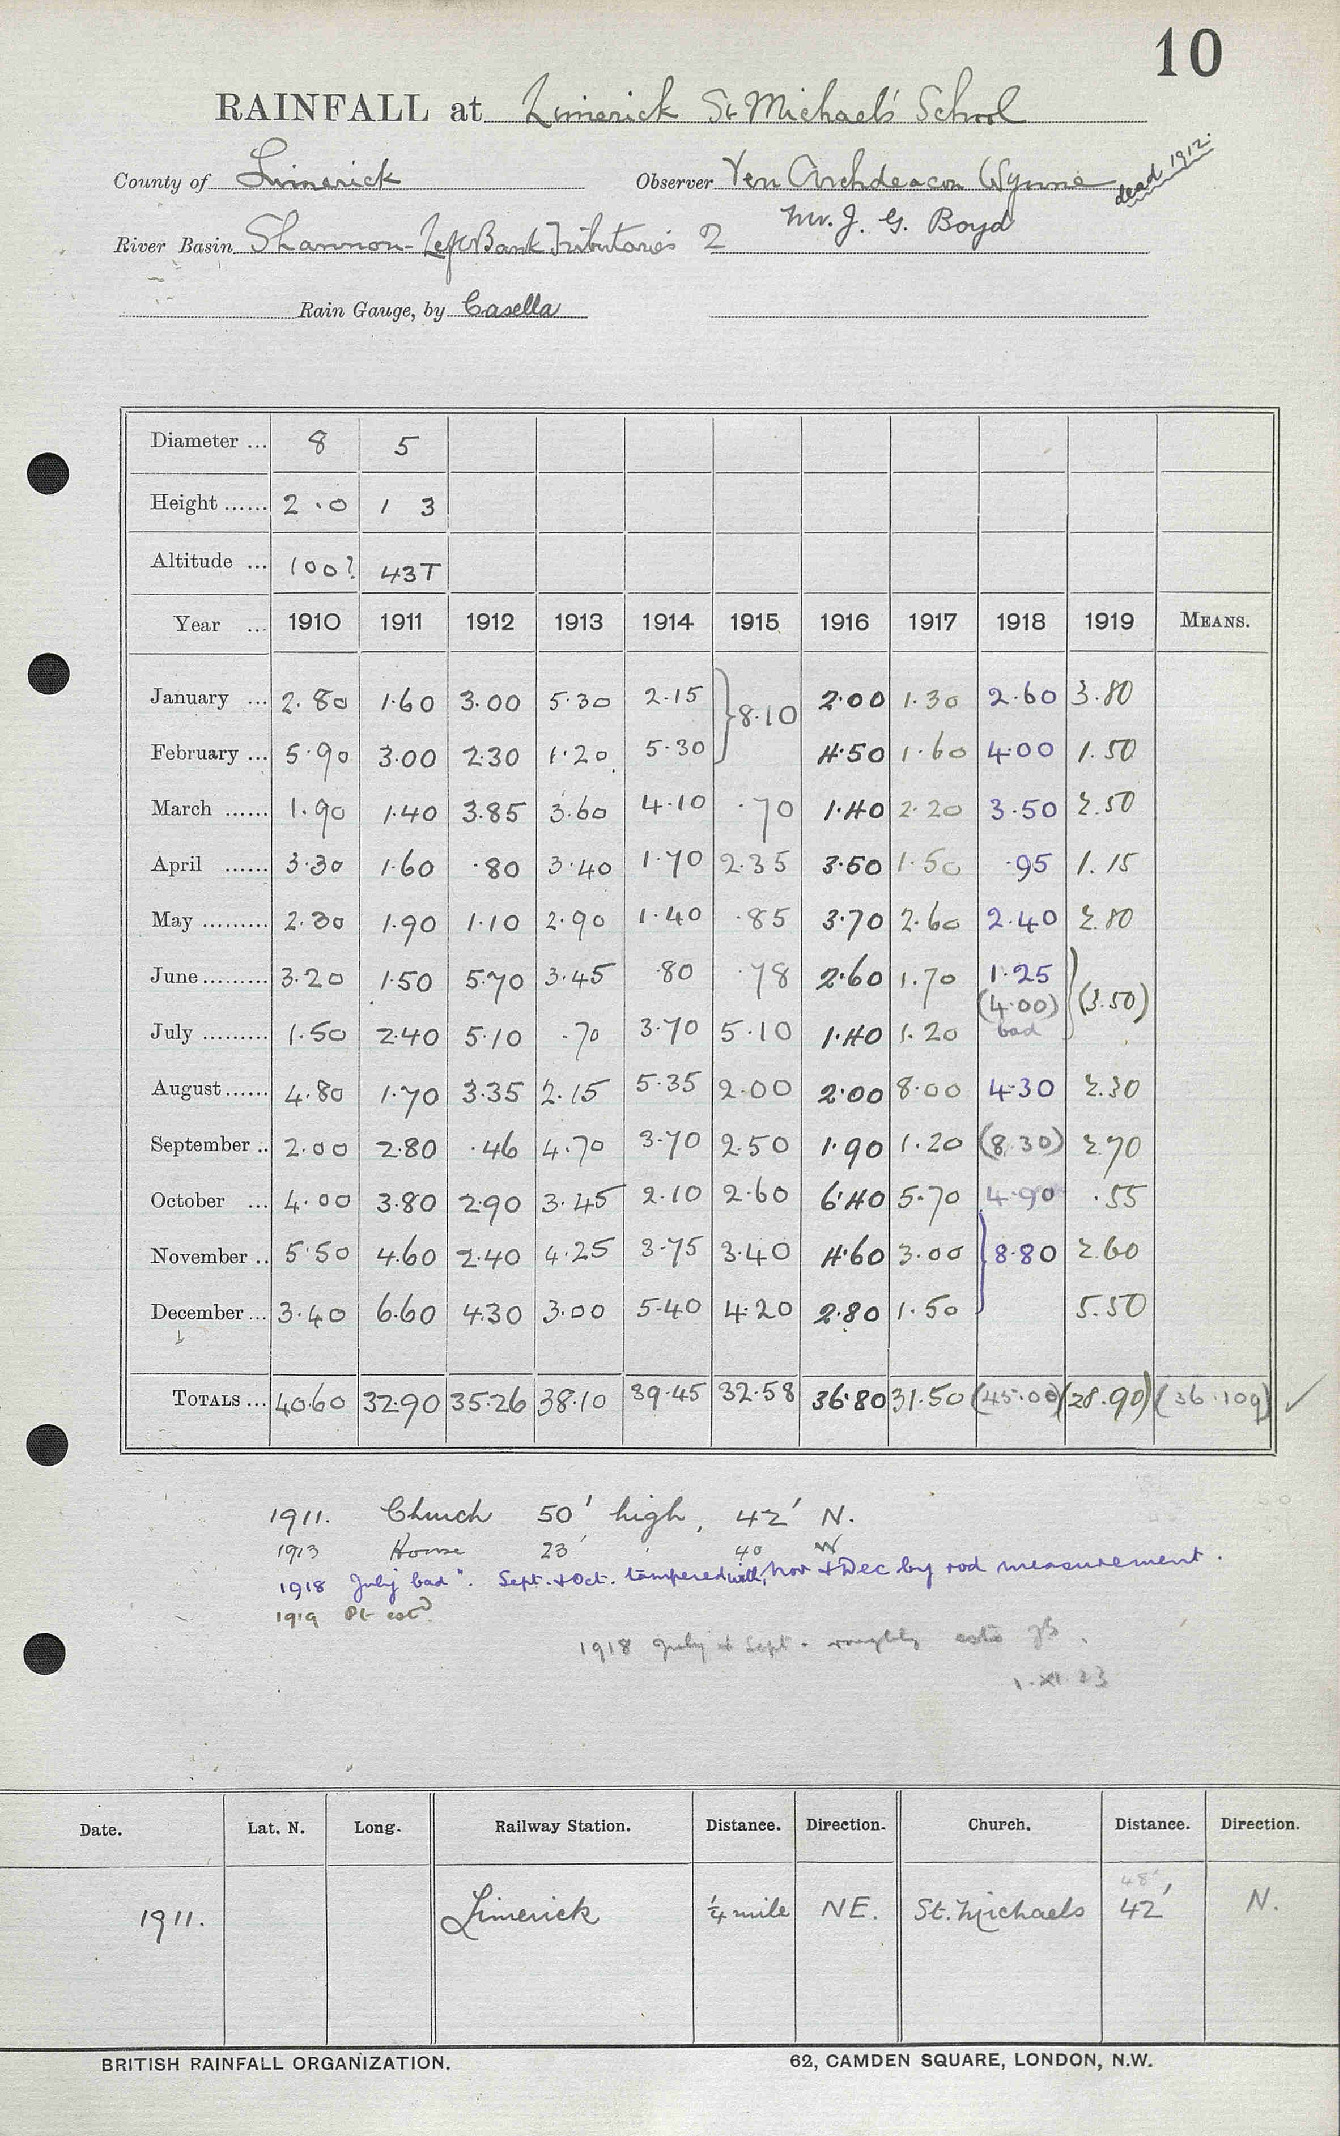 10
RAINFALL at Limerick St Michael's School
County of Limerick Observer Ven Archdeacon Wynne dead 1912.
Mr. J. G. Boyd
River Basin Shannon-Left Bank Tributaries 2
Rain Gauge, by Casella
Diameter ... 8 5
Height ...... 2.0 1 3
Altitude ... 100? 43T
Year ... 1910 1911 1912 1913 1914 1915 1916 1917 1918 1919 MEANS.
January ... 2.80 1.60 3.00 5.30 2.15 } 8.10 2.00 1.30 2.60 3.80
February ... 5.90 3.00 2.30 1.20 5.30 4.50 1.60 4.00 1.50
March ...... 1.90 1.40 3.85 3.60 4.10 .70 1.40 2.20 3.50 2.50
April ...... 3.30 1.60 .80 3.40 1.70 2.35 3.50 1.50 .95 1.15
May ......... 2.30 1.90 1.10 2.90 1.40 .85 3.70 2.60 2.40 2.80
June ......... 3.20 1.50 5.70 3.45 .80 .78 2.60 1.70 1.25 } (3.50)
July ......... 1.50 2.40 5.10 .70 3.70 5.10 1.40 1.20 (4.00) bad
August ...... 4.80 1.70 3.35 2.15 5.35 2.00 2.00 8.00 4.30 2.30
September .. 2.00 2.80 .46 4.70 3.70 2.50 1.90 1.20 (8.30) 2.70
October ... 4.00 3.80 2.90 3.45 2.10 2.60 6.40 5.70 4.90 .55
November .. 5.50 4.60 2.40 4.25 3.75 3.40 4.60 3.00 } 8.80 2.60
December ... 3.40 6.60 4.30 3.00 5.40 4.20 2.80 1.50 5.50
TOTALS ... 40.60 32.90 35.26 38.10 39.45 32.58 36.80 31.50 (45.00) (28.90) (36.109) ✓
1911. Church 50' high, 42' N.
1913 House 23' 40 W
1918 July "bad". Sept. & Oct. tampered with, Nov & Dec by rod measurement.
1919 Pt estd
1918 July & Sept. roughly estd
1.XI.23
Date. Lat. N. Long. Railway Station. Distance. Direction. Church. Distance. Direction.
48'
1911. Limerick ¼ mile NE. St. Michaels 42' N.
BRITISH RAINFALL ORGANIZATION. 62, CAMDEN SQUARE, LONDON, N.W.